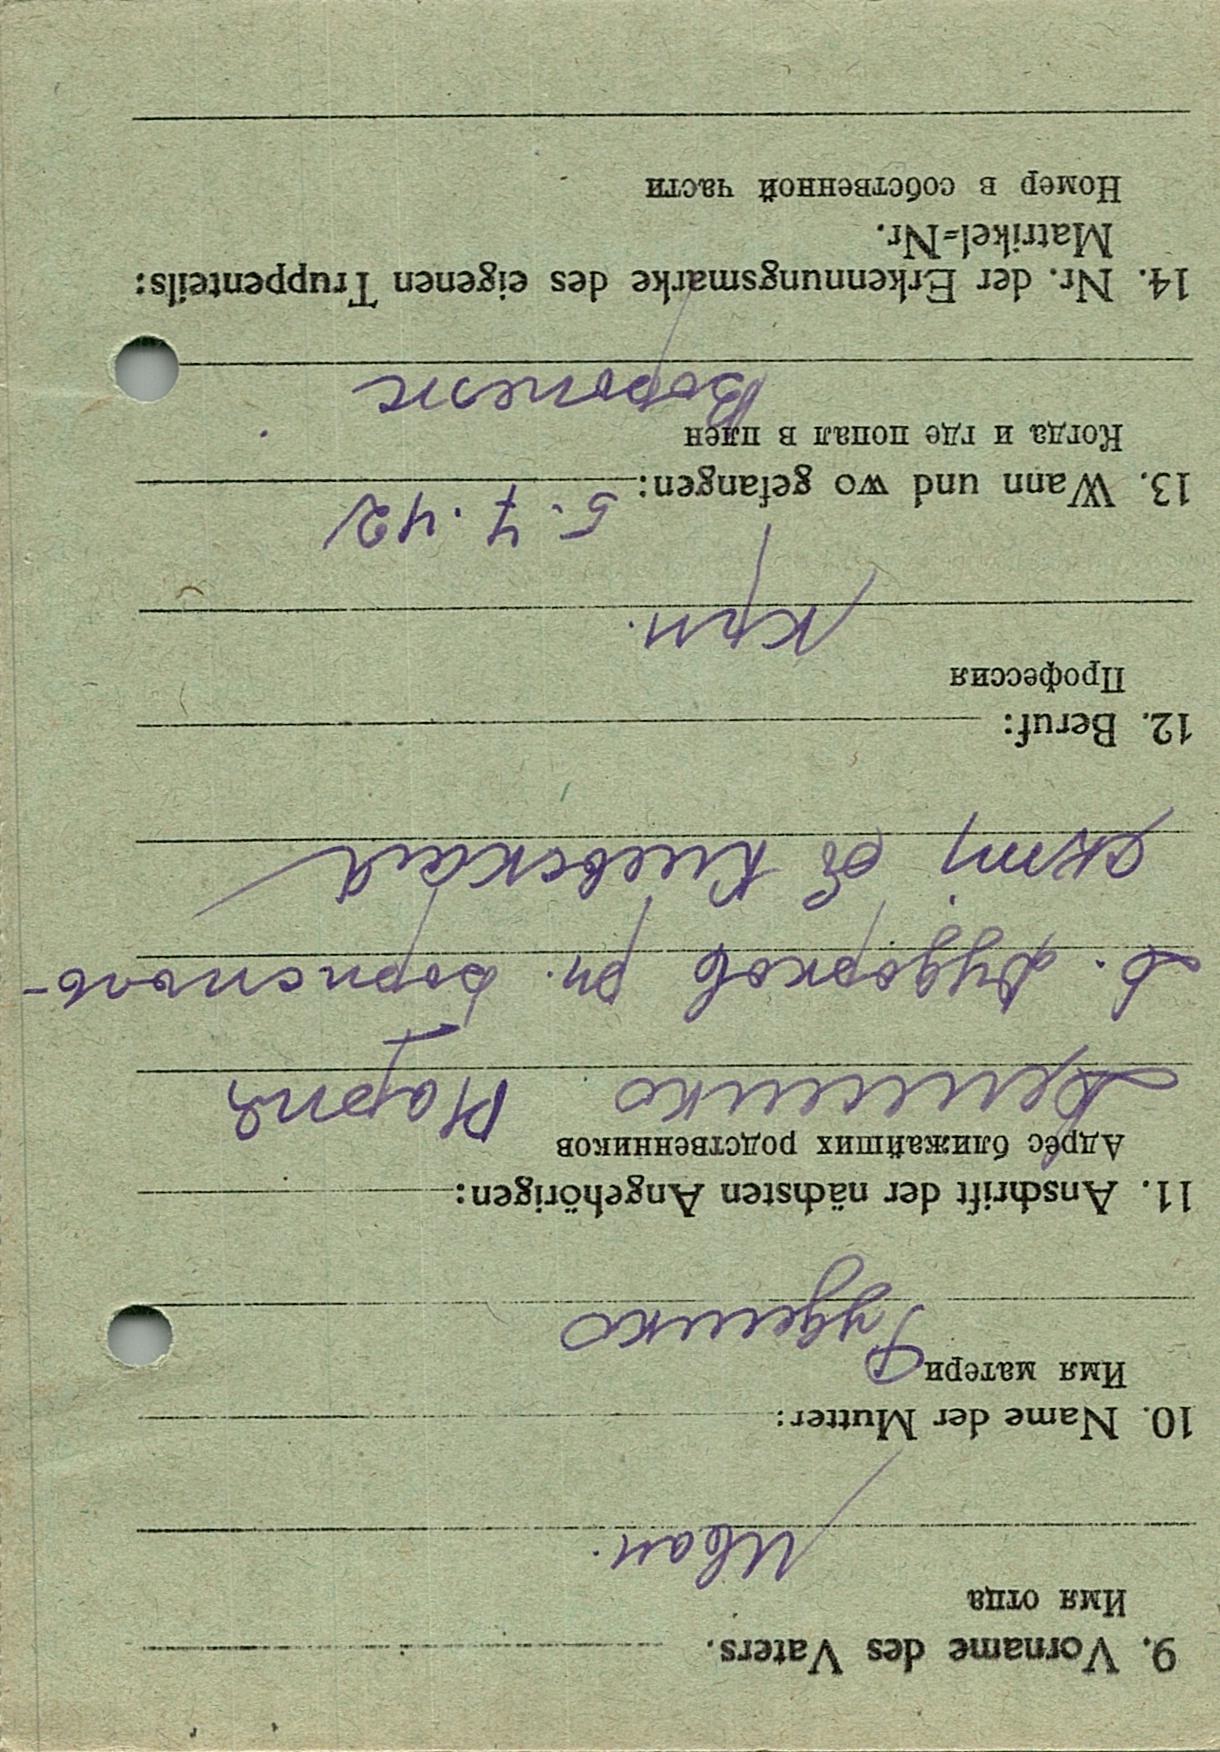 9. Vorname des Vaters.
Имя отца
Иван.
10. Name der Mutter:
Имя матери
Руденко
11. Anschrift der nächsten Angehörigen:
Адрес ближайших родственников
Мария
с. Дударков рн. Борисполь-
ский об Киевская
12. Beruf:
Профессия
Крн.
13. Wann und wo gefangen:
5.7.42
Когда и где попал в плен
Воронеж
14. Nr. der Erkennungsmarke des eigenen Truppenteils:
Matrikel=Nr.
Номер в собственной части